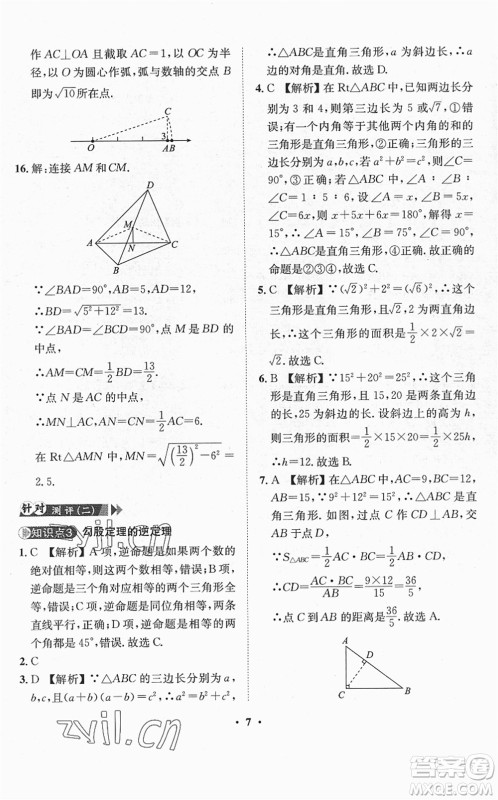 作 AC⊥OA 且截取 AC=1,以 OC 为半
径,以 O 为圆心作弧,弧与数轴的交点 B
即为√10所在点.
C
O 3 A B
16. 解:连接 AM 和 CM.
D
M
A N C
B
∵∠BAD=90°,AD=12,AB=5,
∴BD=√(5²+12²)=13.
∵∠BAD=∠BCD=90°,点 M 是 BD 中
点,
∴AM=1/2 BD=13/2,CM=1/2 BD=13/2.
∵点 N 是 AC 的中点,
∴MN⊥AC,AN=1/2 AC=6.
在 Rt△AMN 中,MN=√((13/2)²−6²)=
2.5.
针对 测评(二)
知识点3 勾股定理的逆定理
1. C 【解析】A 项,逆命题是如果两个数的
绝对值相等,那么这两个数相等,错误;B
项,逆命题是三个角对应相等的两个三角
形全等,错误;D 项,逆命题是两个相等的
角都是 45°,错误. 故选 C.
2. C
3. D 【解析】∵△ABC 的三边长分别为 a,
b,c,且(a+b)(a−b)=c²,∴a²=b²+c²,
∴△ABC 是直角三角形,a 为斜边长,∴a
边的对角是直角. 故选 D.
4. C 【解析】在 Rt△ABC 中,已知两边长分
别为 3 和 4,则第三边长为 5 或√7,①错
误;有一个内角等于其他两个内角和的
三角形是直角三角形,②正确;三角形的
三边分别为 a,b,c,若 a²+c²=b²,那么
∠B=90°,③正确;在△ABC 中,若∠A:
∠B:∠C=1:5:6,设∠A=x,∠B=
5x,∠C=6x,则 x+5x+6x=180°,解得 x=
15°,∴∠A=15°,∠B=75°,∠C=90°,
则△ABC 是直角三角形,④正确. 故正确的
命题是②③④,共 3 个. 故选 C.
5. C 【解析】∵(√2)²+2²=(√6)²,∴这个
三角形是直角三角形,且两直角边的长为
√2和 2,∴此三角形的面积是1/2×2×√2=
√2. 故选 C.
6. B 【解析】∵15²+20²=25²,∴这个三角
形是直角三角形,且 25 是直角三角形斜边
的长. 设斜边上的高为 h,∴该直角三角
形的面积=1/2×15×20=1/2×25×h,
∴h=12. 故选 B.
7. A 【解析】在△ABC 中,AC=9,BC=12,
AB=15,∵9²+12²=15²,∴∠C=90°.
∵S△ABC=1/2 AC·BC=1/2 AB·CD,
∴CD=AC·BC/AB=9×12/15=36/5.
∴点 C 到 AB 的距离是36/5. 故选 A.
A
D
C B
· 7 ·
zyjl.cn
zyjl.cn
答案圈
MXQE.COM